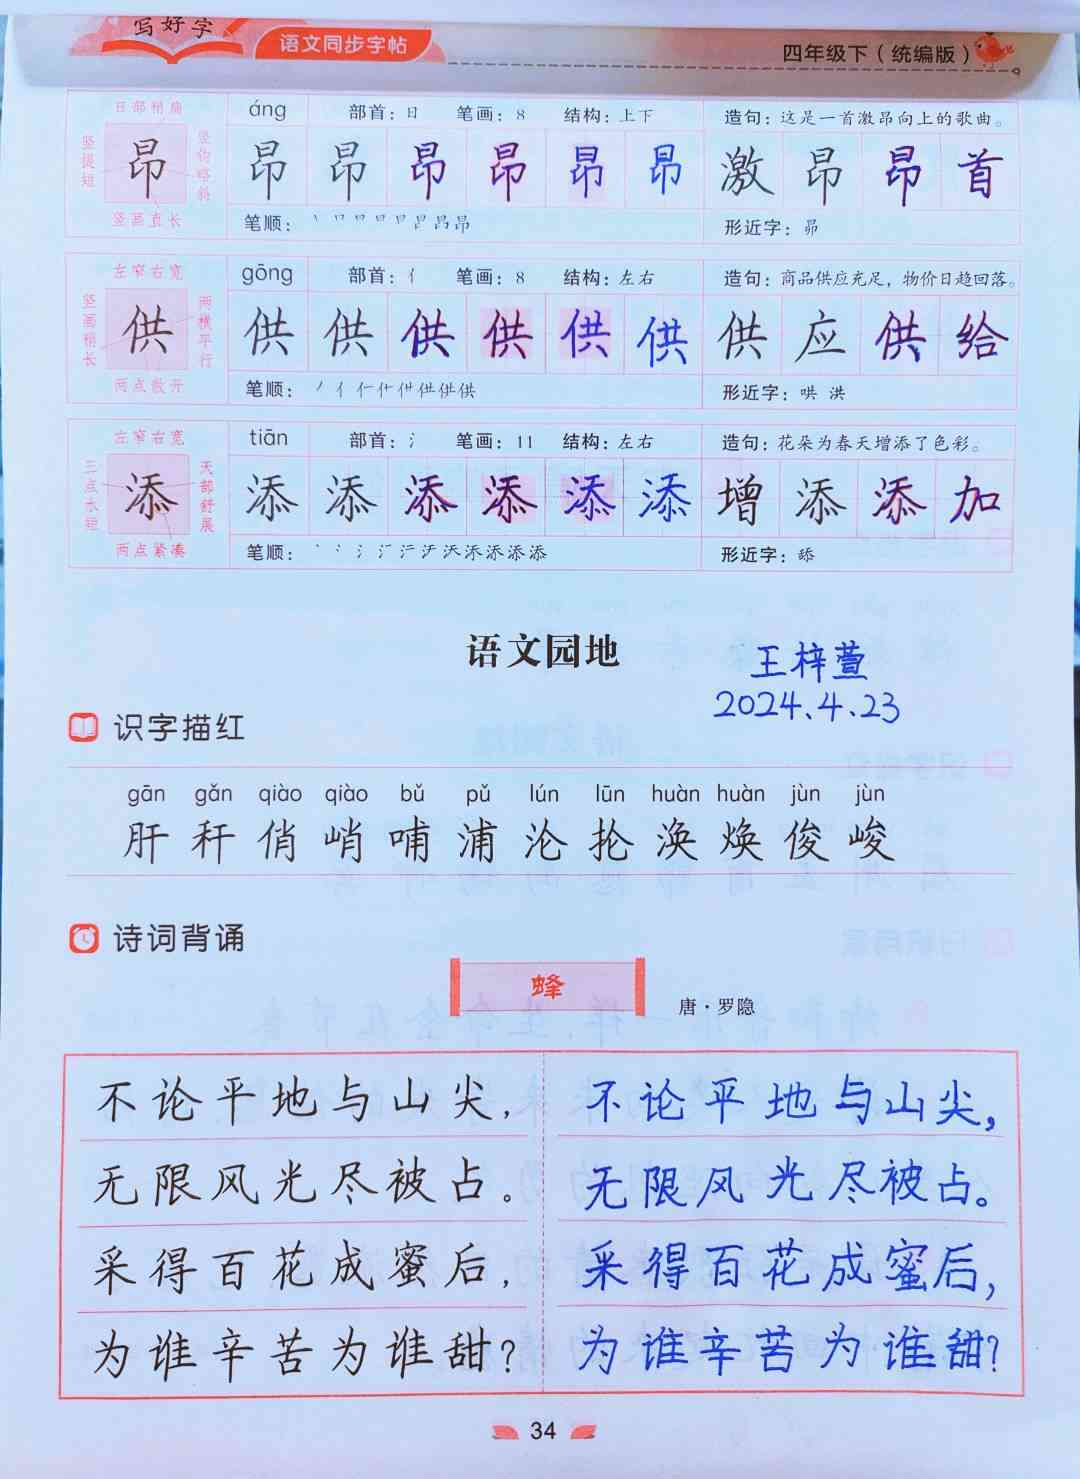 写好字
语文同步字帖
四年级下（统编版）
日部稍扁
竖提短
昂
竖钩略斜
竖画直长
áng 部首：日 笔画：8 结构：上下 造句：这是一首激昂向上的歌曲。
昂 昂 昂 昂 昂 昂 激 昂 昂 首
笔顺： 形近字：昴
左窄右宽
竖画稍长
供
两横平行
两点散开
gōng 部首：亻 笔画：8 结构：左右 造句：商品供应充足，物价日趋回落。
供 供 供 供 供 供 供 应 供 给
笔顺： 形近字：哄 洪
左窄右宽
三点水短
添
天部舒展
两点紧凑
tiān 部首：氵 笔画：11 结构：左右 造句：花朵为春天增添了色彩。
添 添 添 添 添 添 增 添 添 加
笔顺： 形近字：舔
语文园地
王梓萱
2024.4.23
识字描红
gān gǎn qiào qiào bǔ pǔ lún lūn huàn huàn jùn jùn
肝 秆 俏 峭 哺 浦 沦 抡 涣 焕 俊 峻
诗词背诵
蜂
唐·罗隐
不论平地与山尖，
无限风光尽被占。
采得百花成蜜后，
为谁辛苦为谁甜？
不论平地与山尖，
无限风光尽被占。
采得百花成蜜后，
为谁辛苦为谁甜？
34